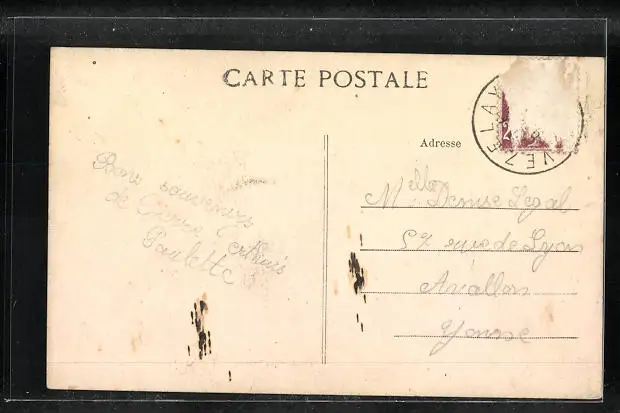 CARTE POSTALE
VEZELAY
2
Adresse
Bons souvenirs
de
Paulette
Melle Denise Legal
57 rue de Lyon
Avallon
Yonne